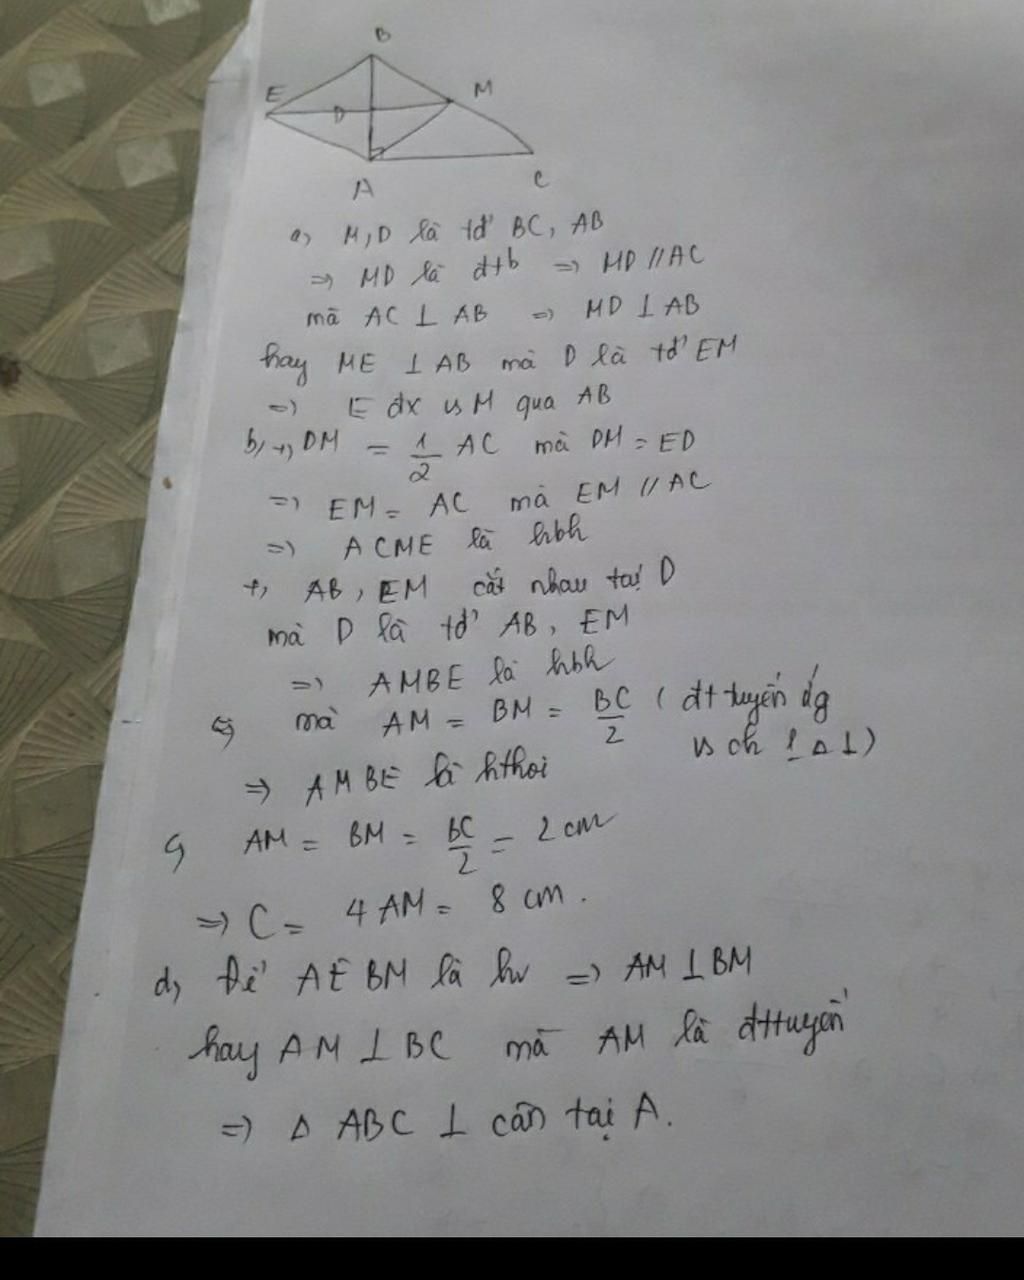 B
E
D
M
A
C
a, M, D là tđ' BC, AB
=> MD là đtb => MD // AC
mà AC ⊥ AB => MD ⊥ AB
hay ME ⊥ AB mà D là tđ' EM
=> E đx vs M qua AB
b, +, DM = 1/2 AC mà DM = ED
=> EM = AC mà EM // AC
=> ACME là hbh
+, AB, EM cắt nhau tại D
mà D là tđ' AB, EM
=> AMBE là hbh
mà AM = BM = BC/2 ( đt tuyến ứg
vs ch △ ⊥ )
=> AMBE là hthoi
c, AM = BM = BC/2 = 2 cm
=> C = 4 AM = 8 cm .
d, Để AEBM là hv => AM ⊥ BM
hay AM ⊥ BC mà AM là đttuyến
=> △ ABC ⊥ cân tại A.